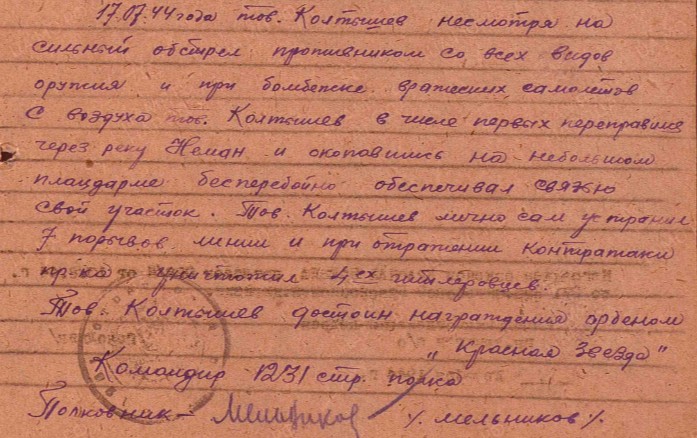 17.07.44 года тов. Колтышев несмотря на
сильный обстрел противником со всех видов
оружия и при бомбежке вражеских самолетов
с воздуха тов. Колтышев в числе первых переправился
через реку Неман и окопавшись на небольшом
плацдарме бесперебойно обеспечивал связью
свой участок. Тов. Колтышев лично сам устранил
7 порывов линии и при отражении контратаки
пр-ка уничтожил 4ех гитлеровцев.
Тов. Колтышев достоин награждения орденом
„Красная Звезда"
Командир 1231 стр. полка
Полковник – Мельников /Мельников/.